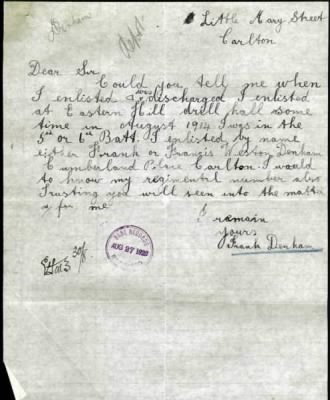 Denham
Little Mary Street
Carlton
Dear Sir
Could you tell me when
I enlisted & was discharged I enlisted
at Eastern Hill drill hall some
time in August 1914 I was in the
5th or 6th Batt. I enlisted by name
either Frank or Francis Weston Denham
Cumberland Place Carlton. I would
to know my regimental number also
Trusting you will seen into the matter
for me
I remain
yours
Frank Denham
BASE RECORDS
AUG 27 1920
30/8